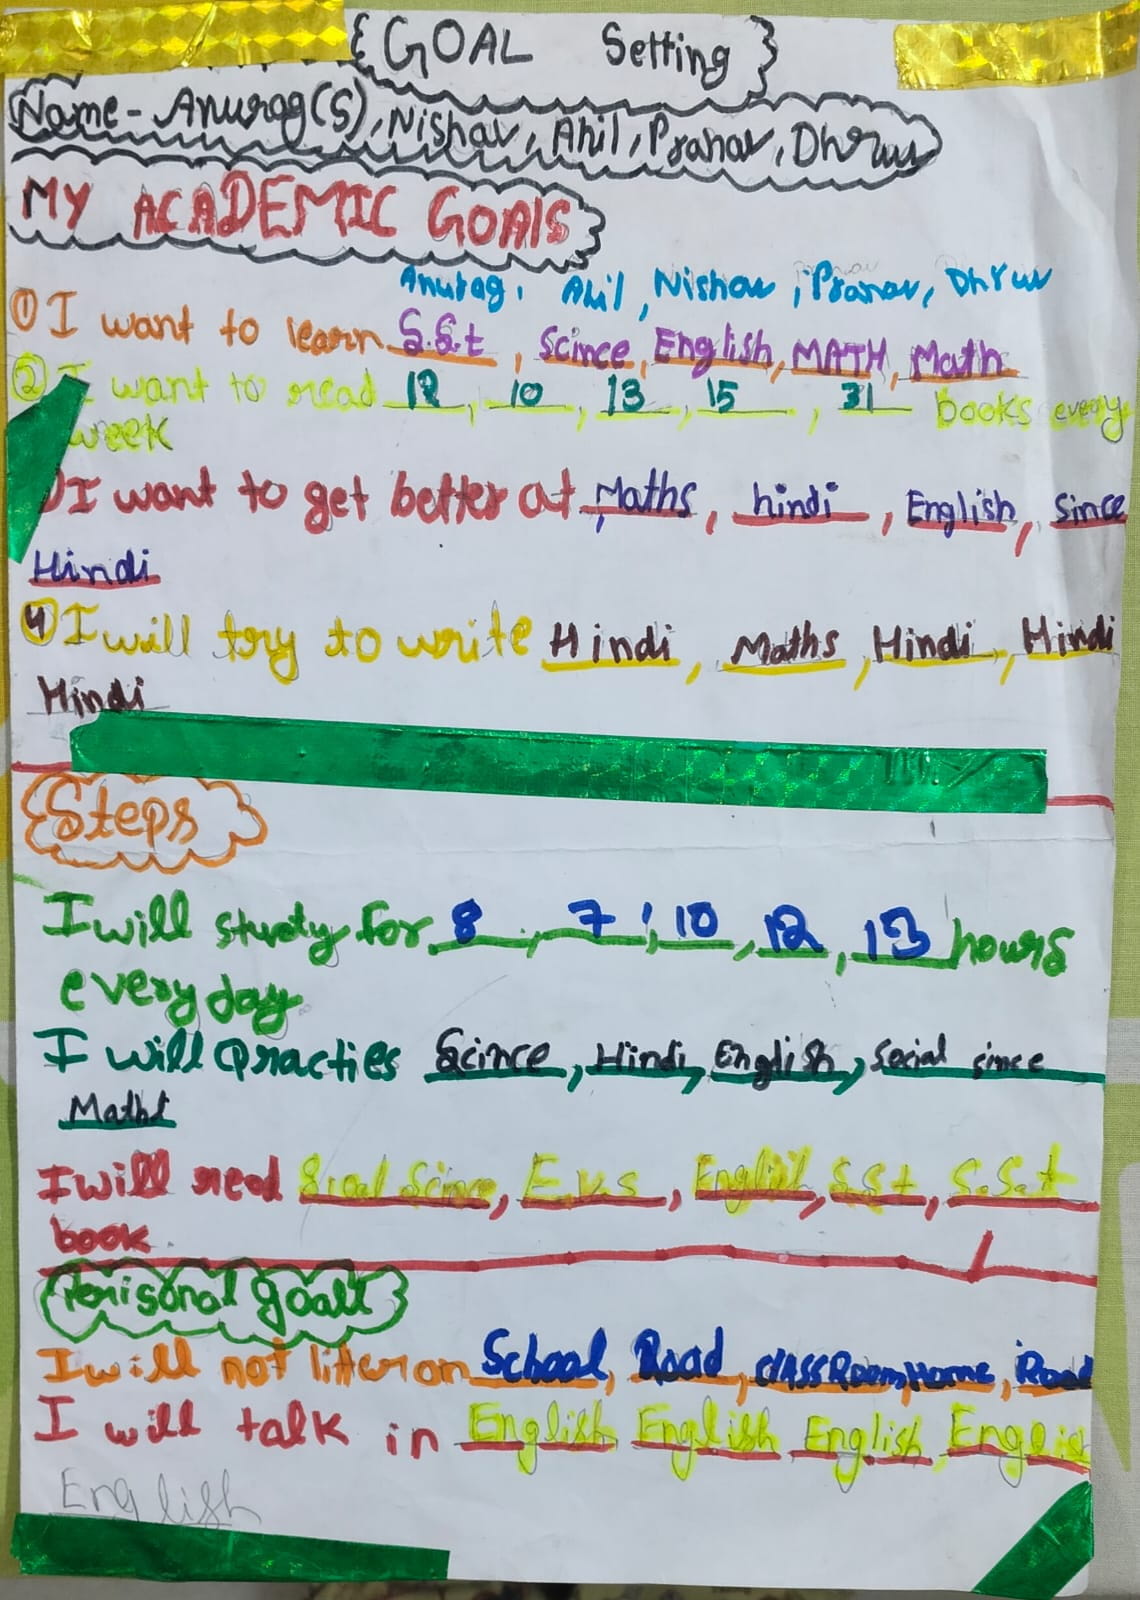 GOAL Setting
Name - Anurag(S), Nishav, Ahil, Pranav, Dhruv
MY ACADEMIC GOAlS
Anurag, Ahil, Nishav, Pranav, Dhruv
① I want to learn S.S.t, Scince, English, MATH, Math
② I want to read 12, 10, 13, 15, 31 books every
week
I want to get better at Maths, hindi, English, Since
Hindi
4 I will try to write Hindi, Maths, Hindi, Hindi
Hindi
Steps
I will study for 8, 7, 10, 12, 13 hours
every day
I will Practies Scince, Hindi, English, Social since
Maths
I will read Social Since, E.v.s, English, S.S.t, S.S.t
book
Perisonal goalt
I will not litter on School, Road, classRoom, Home, Road
I will talk in English English English, English
English